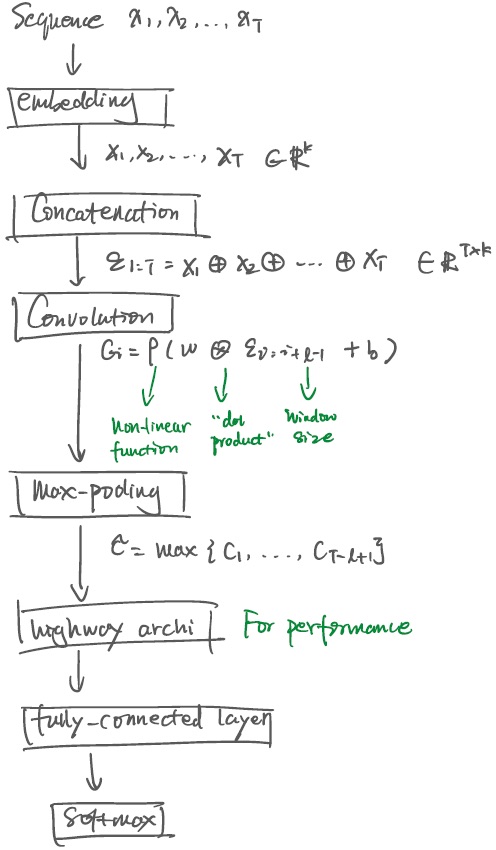 Sequence x₁, x₂, ..., x_T
embedding
x₁, x₂, ..., x_T ∈ ℝᵏ
Concatenation
ε₁:T = x₁ ⊕ x₂ ⊕ ... ⊕ x_T ∈ ℝᵀˣᵏ
Convolution
Cᵢ = ρ(w ⊗ εᵢ:ᵢ₊ₗ₋₁ + b)
Non-linear function
"dot product"
Window size
Max-pooling
ĉ = max {C₁, ..., C_T-l+1}
highway archi
For performance
fully-connected layer
Softmax